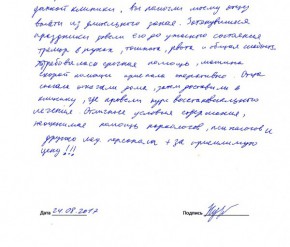 вашей клинике, Вы помогли моему отцу
выйти из длительного запоя. Затянувшиеся
праздники довели его до ужасного состояния
тремор в руках, тошнота, рвота и общая слабость.
Потребовалась срочная помощь, машина
скорой помощи приехала оперативно. Отца
сначала откачали дома, затем доставили в
клинику, где провели курс восстановительного
лечения. Отличные условия содержания,
неоценимая помощь наркологов, психологов и
другого мед. персонала + за приемлемую
цену!!!
Дата 24.08.2017 Подпись